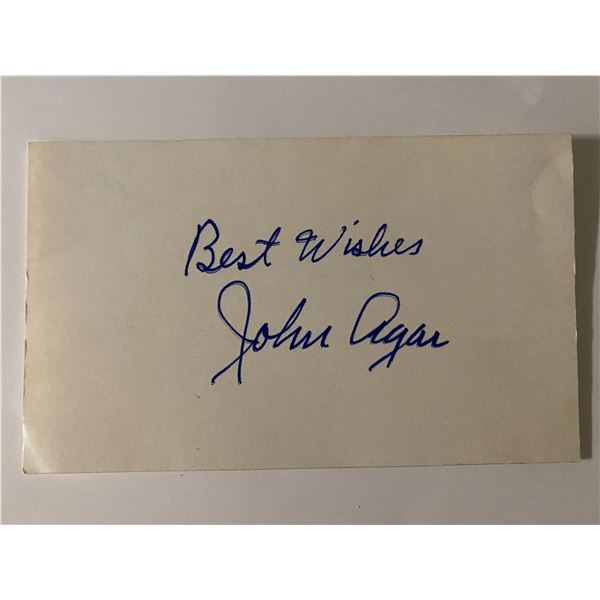 Best Wishes
John Agar